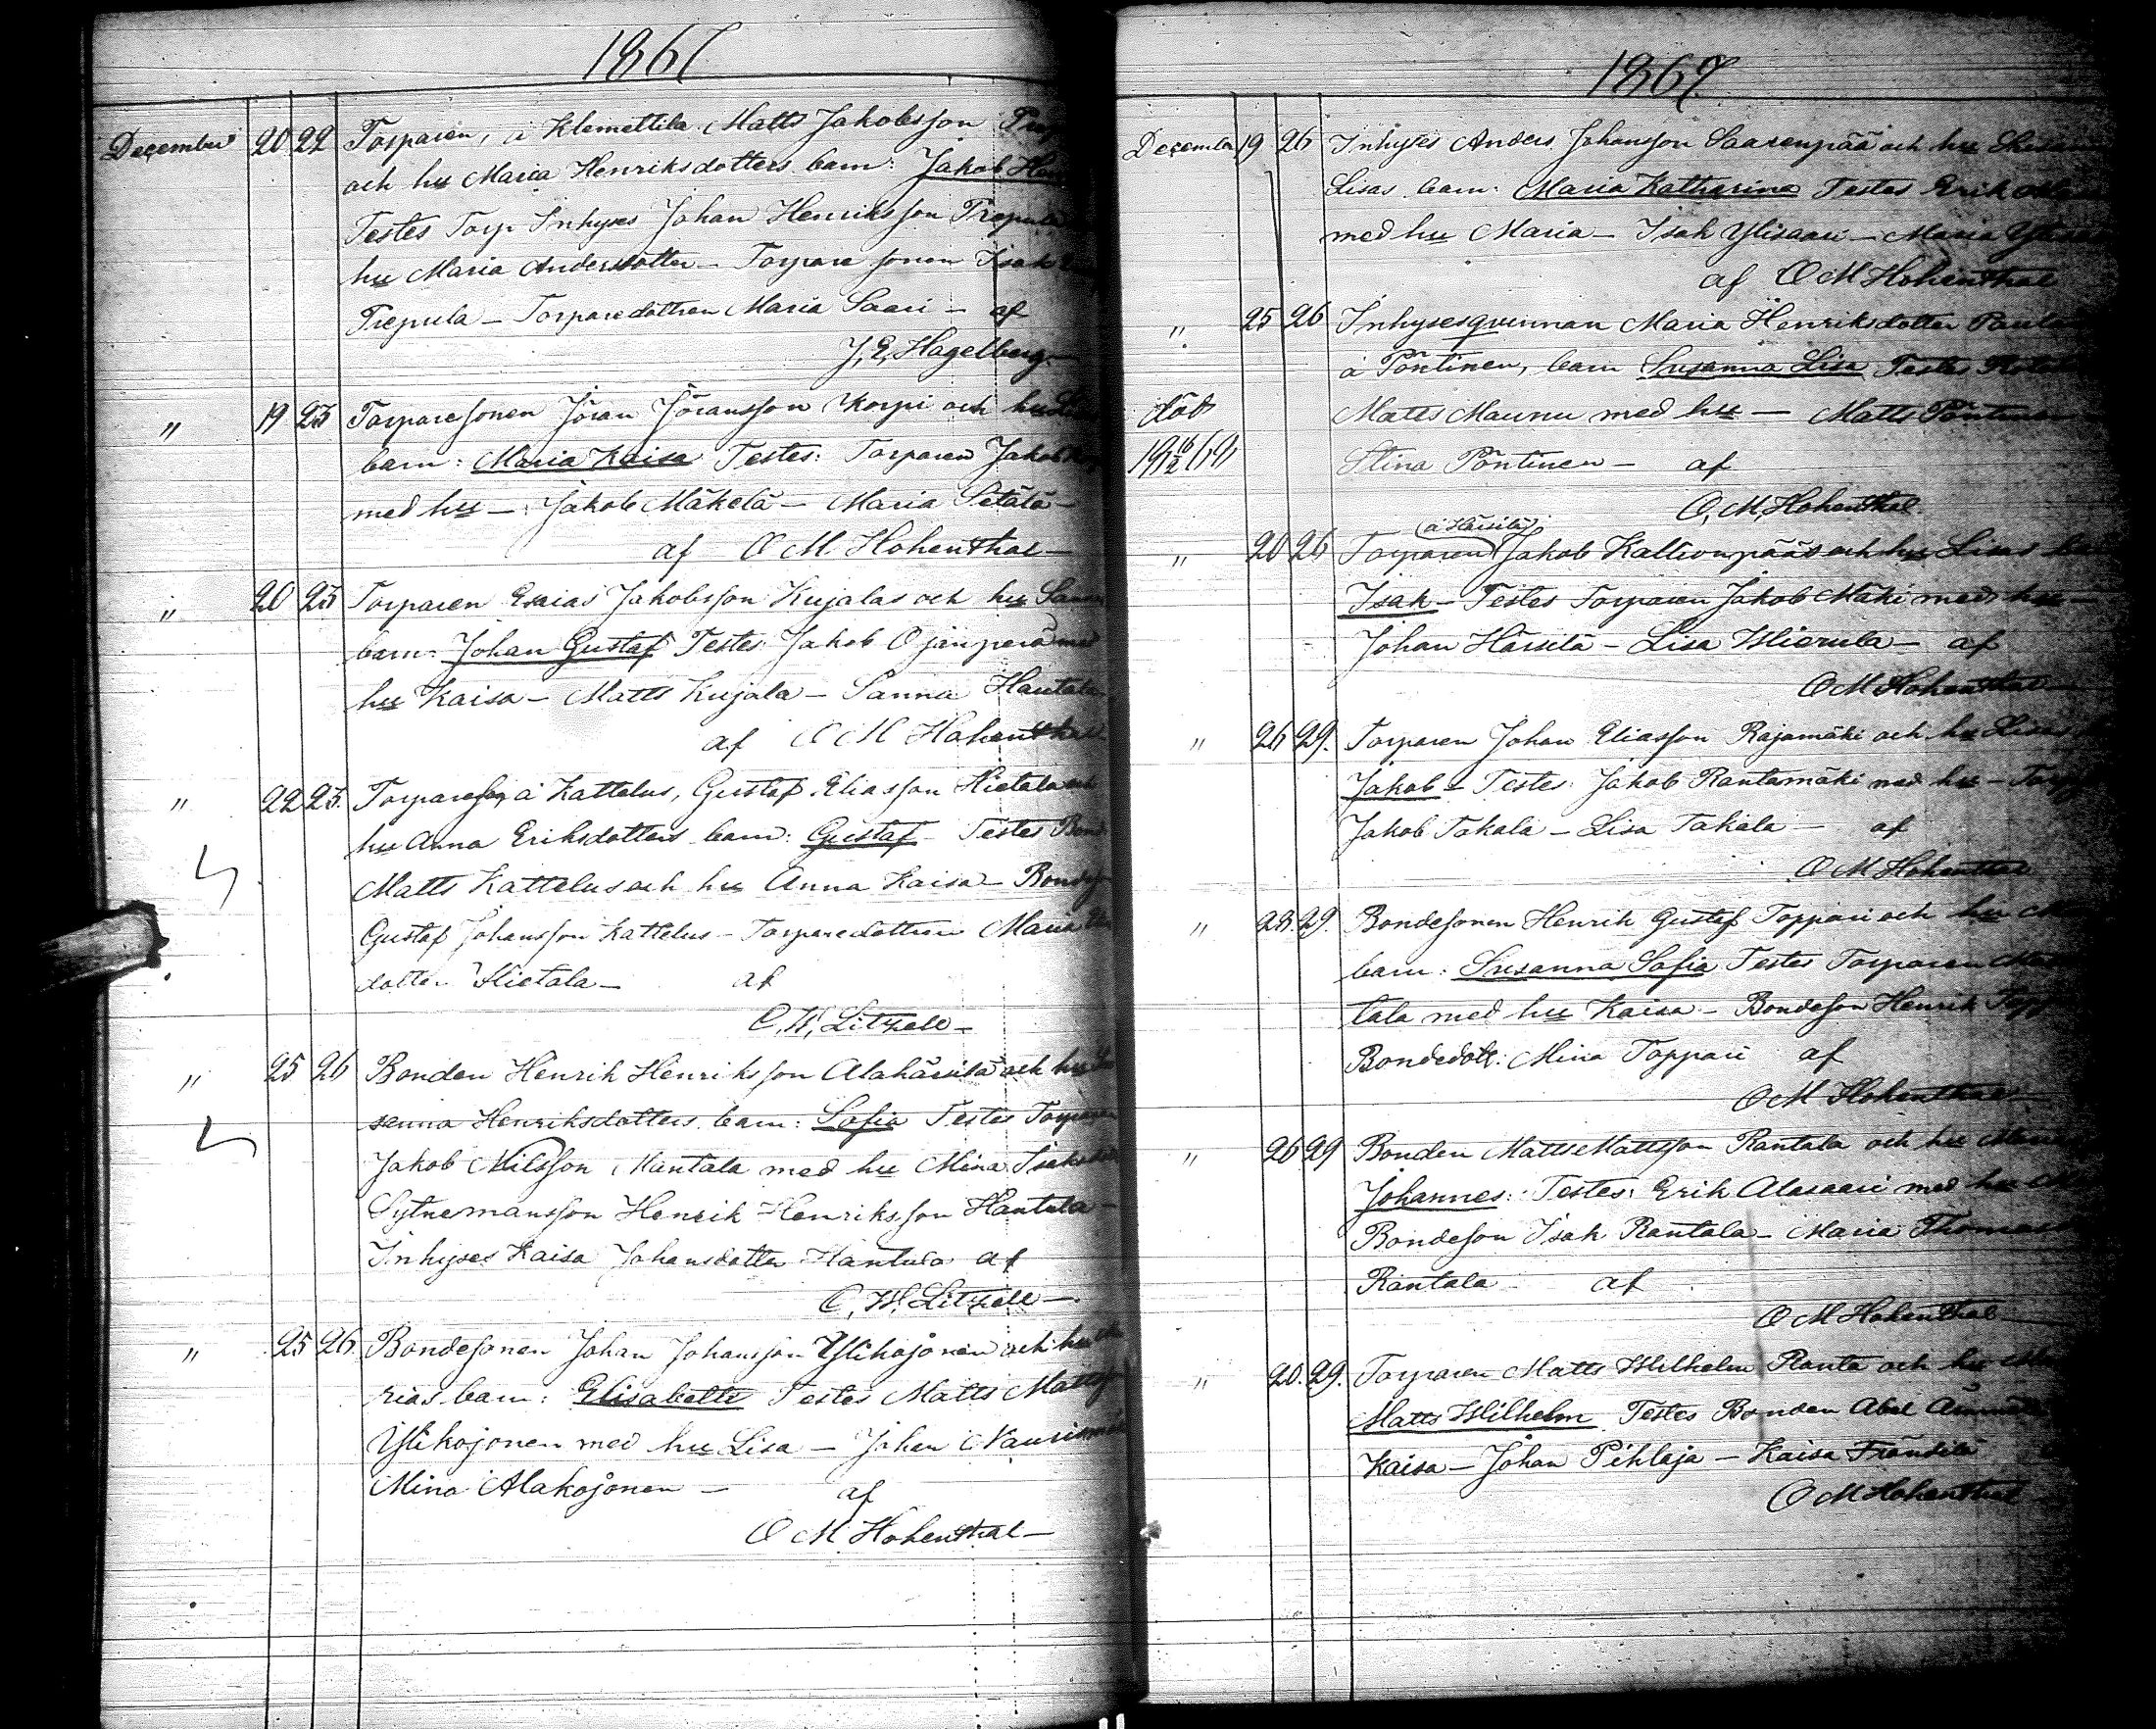 1867
December 20 22 Torparen, å Klemettila Matts Jakobsson
och hu Maria Henriksdotters barn: Jakob
Testes Torp Inhyses Johan Henriksson Prepula
hu Maria Andersdotter - Torpare sonen Isak
Prepula - Torparedottren Maria Saari - af
J. E. Hagelberg.
" 19 23 Torparesonen Jöran Jöransson Korpi och hu
barn: Maria Kaisa Testes: Torparen Jakob
med hu - Jakob Mäkelä - Maria Setälä -
af O M Hohenthal -
" 20 23 Torparen Esaias Jakobsson Kujalas och hu
barn: Johan Gustaf Testes Jakob Ojanperä med
hu Kaisa - Matts Kujala - Sanna Hautala
af O M Hohenthal
" 22 23. Torpareson å Kattelus, Gustaf Eliasson Hietala och
hu Anna Eriksdotters barn: Gustaf - Testes Bond
Matts Kattelus och hu Anna Kaisa - Bondes
Gustaf Johansson Kattelus - Torparedottren Maria
dotter Hietala - af
C. W. Litzell -
" 25 26 Bonden Henrik Henriksson Alahärsilä och hu Su
sanna Henriksdotters barn: Sofia Testes Torparen
Jakob Nilsson Mantala med hu Mina Isaksd
Sytnemansson Henrik Henriksson Hantula -
Inhyses Kaisa Johansdotter Hantula af
C. W. Litzell -
" 25 26. Bondesonen Johan Johansson Ylikojonen och hu Ma
rias barn: Elisabeth Testes Matts Mattsson
Ylikojonen med hu Lisa - Johan
Mina Alakojonen - af
O M. Hohenthal -
1867.
December 19 26 Inhyses Anders Johansson Saarenpää och hu
Lisas barn: Maria Katharina Testes Erik
med hu Maria - Isak Ylisaari - Maria
af O M Hohenthal
" 25 26 Inhysesqvinnan Maria Henriksdotter
å Pöntinen, barn Susanna Lisa Testes
död Matts Maunu med hu - Matts Pöntinen
Stina Pöntinen - af
O, M, Hohenthal.
(å Härsilä)
" 20 26 Torparen Jakob Kallionpääs och hu Lisas
Isak - Testes Torparen Jakob Mäki med hu -
Johan Härsilä - Lisa Wiorula - af
O M Hohenthal -
" 26 29. Torparen Johan Eliasson Rajamäki och hu Lisas
Jakob - Testes: Jakob Rantamäki med hu -
Jakob Takala - Lisa Takala - af
O M Hohenthal
" 28. 29. Bondesonen Henrik Gustaf Toppari och hu
barn: Susanna Sofia Testes Torparen
tala med hu Kaisa - Bondeson Henrik
Bondedott: Mina Toppari af
O M Hohenthal
" 26 29 Bonden Matts Mattsson Rantala och hu
Johannes: Testes: Erik Alasaari med hu
Bondeson Isak Rantala - Maria
Rantala af
O M Hohenthal
" 20. 29. Torparen Matts Wilhelm Ranta och hu
Matts Wilhelm Testes Bonden Abel
Kaisa - Johan Pihlaja - Kaisa Fränsilä
O M Hohenthal